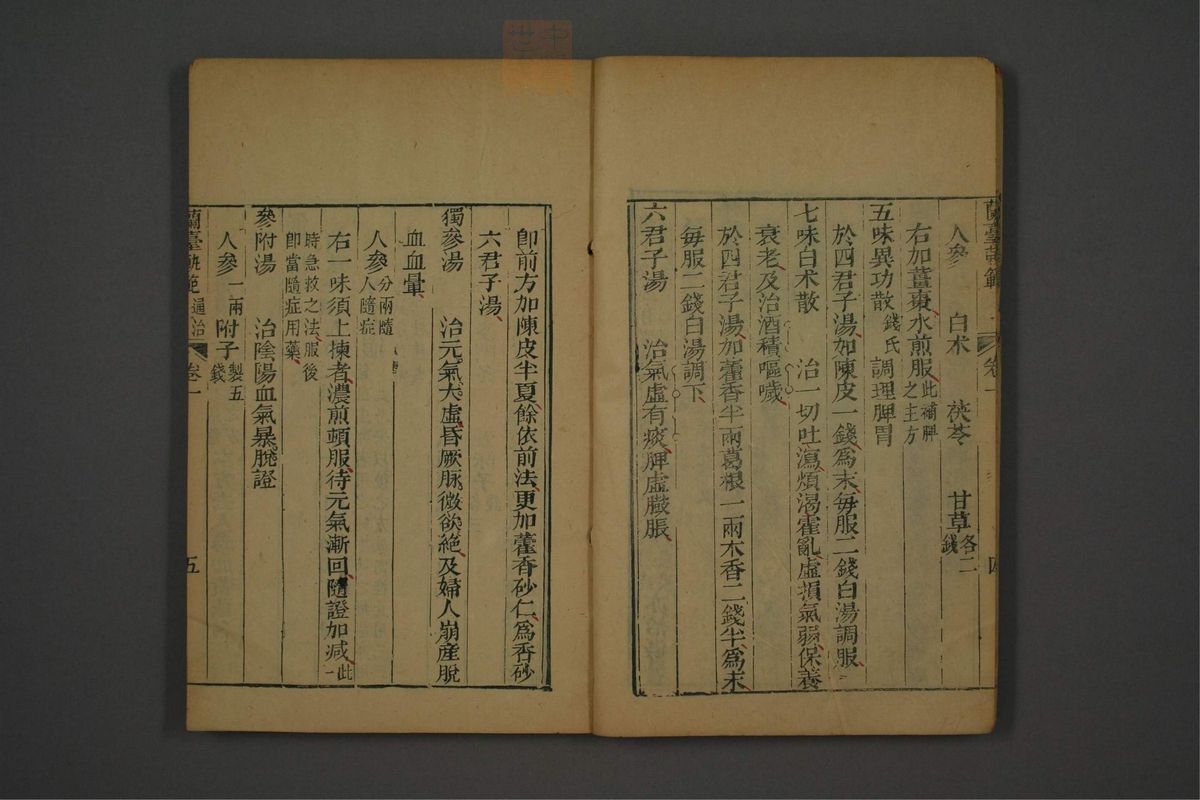 蘭臺軌範 卷一 四
人參 白朮 茯苓 甘草各二錢
右加薑棗水煎服此補脾之主方
五味異功散錢氏 調理脾胃
於四君子湯加陳皮一錢爲末每服二錢白湯調服
七味白朮散 治一切吐瀉煩渴霍亂虛損氣弱保養
衰老及治酒積嘔噦
於四君子湯加藿香半兩葛根一兩木香二錢半爲末
每服二錢白湯調下
六君子湯 治氣虛有痰脾虛臌脹
卽前方加陳皮半夏餘依前法更加藿香砂仁爲香砂
六君子湯
獨參湯 治元氣大虛昏厥脉微欲絶及婦人崩產脫
血血暈
人參分兩隨人隨症
右一味須上揀者濃煎頓服待元氣漸回隨證加减此一
時急救之法服後卽當隨症用藥
參附湯 治陰陽血氣暴脫證
人參一兩 附子製五錢
蘭臺軌範 通治 卷一 五